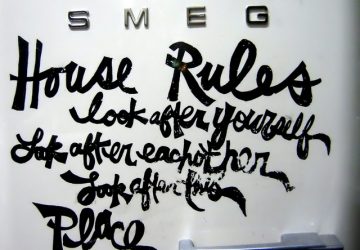 SMEG
House Rules
look after yourself
Look after eachother
Look after this
Place